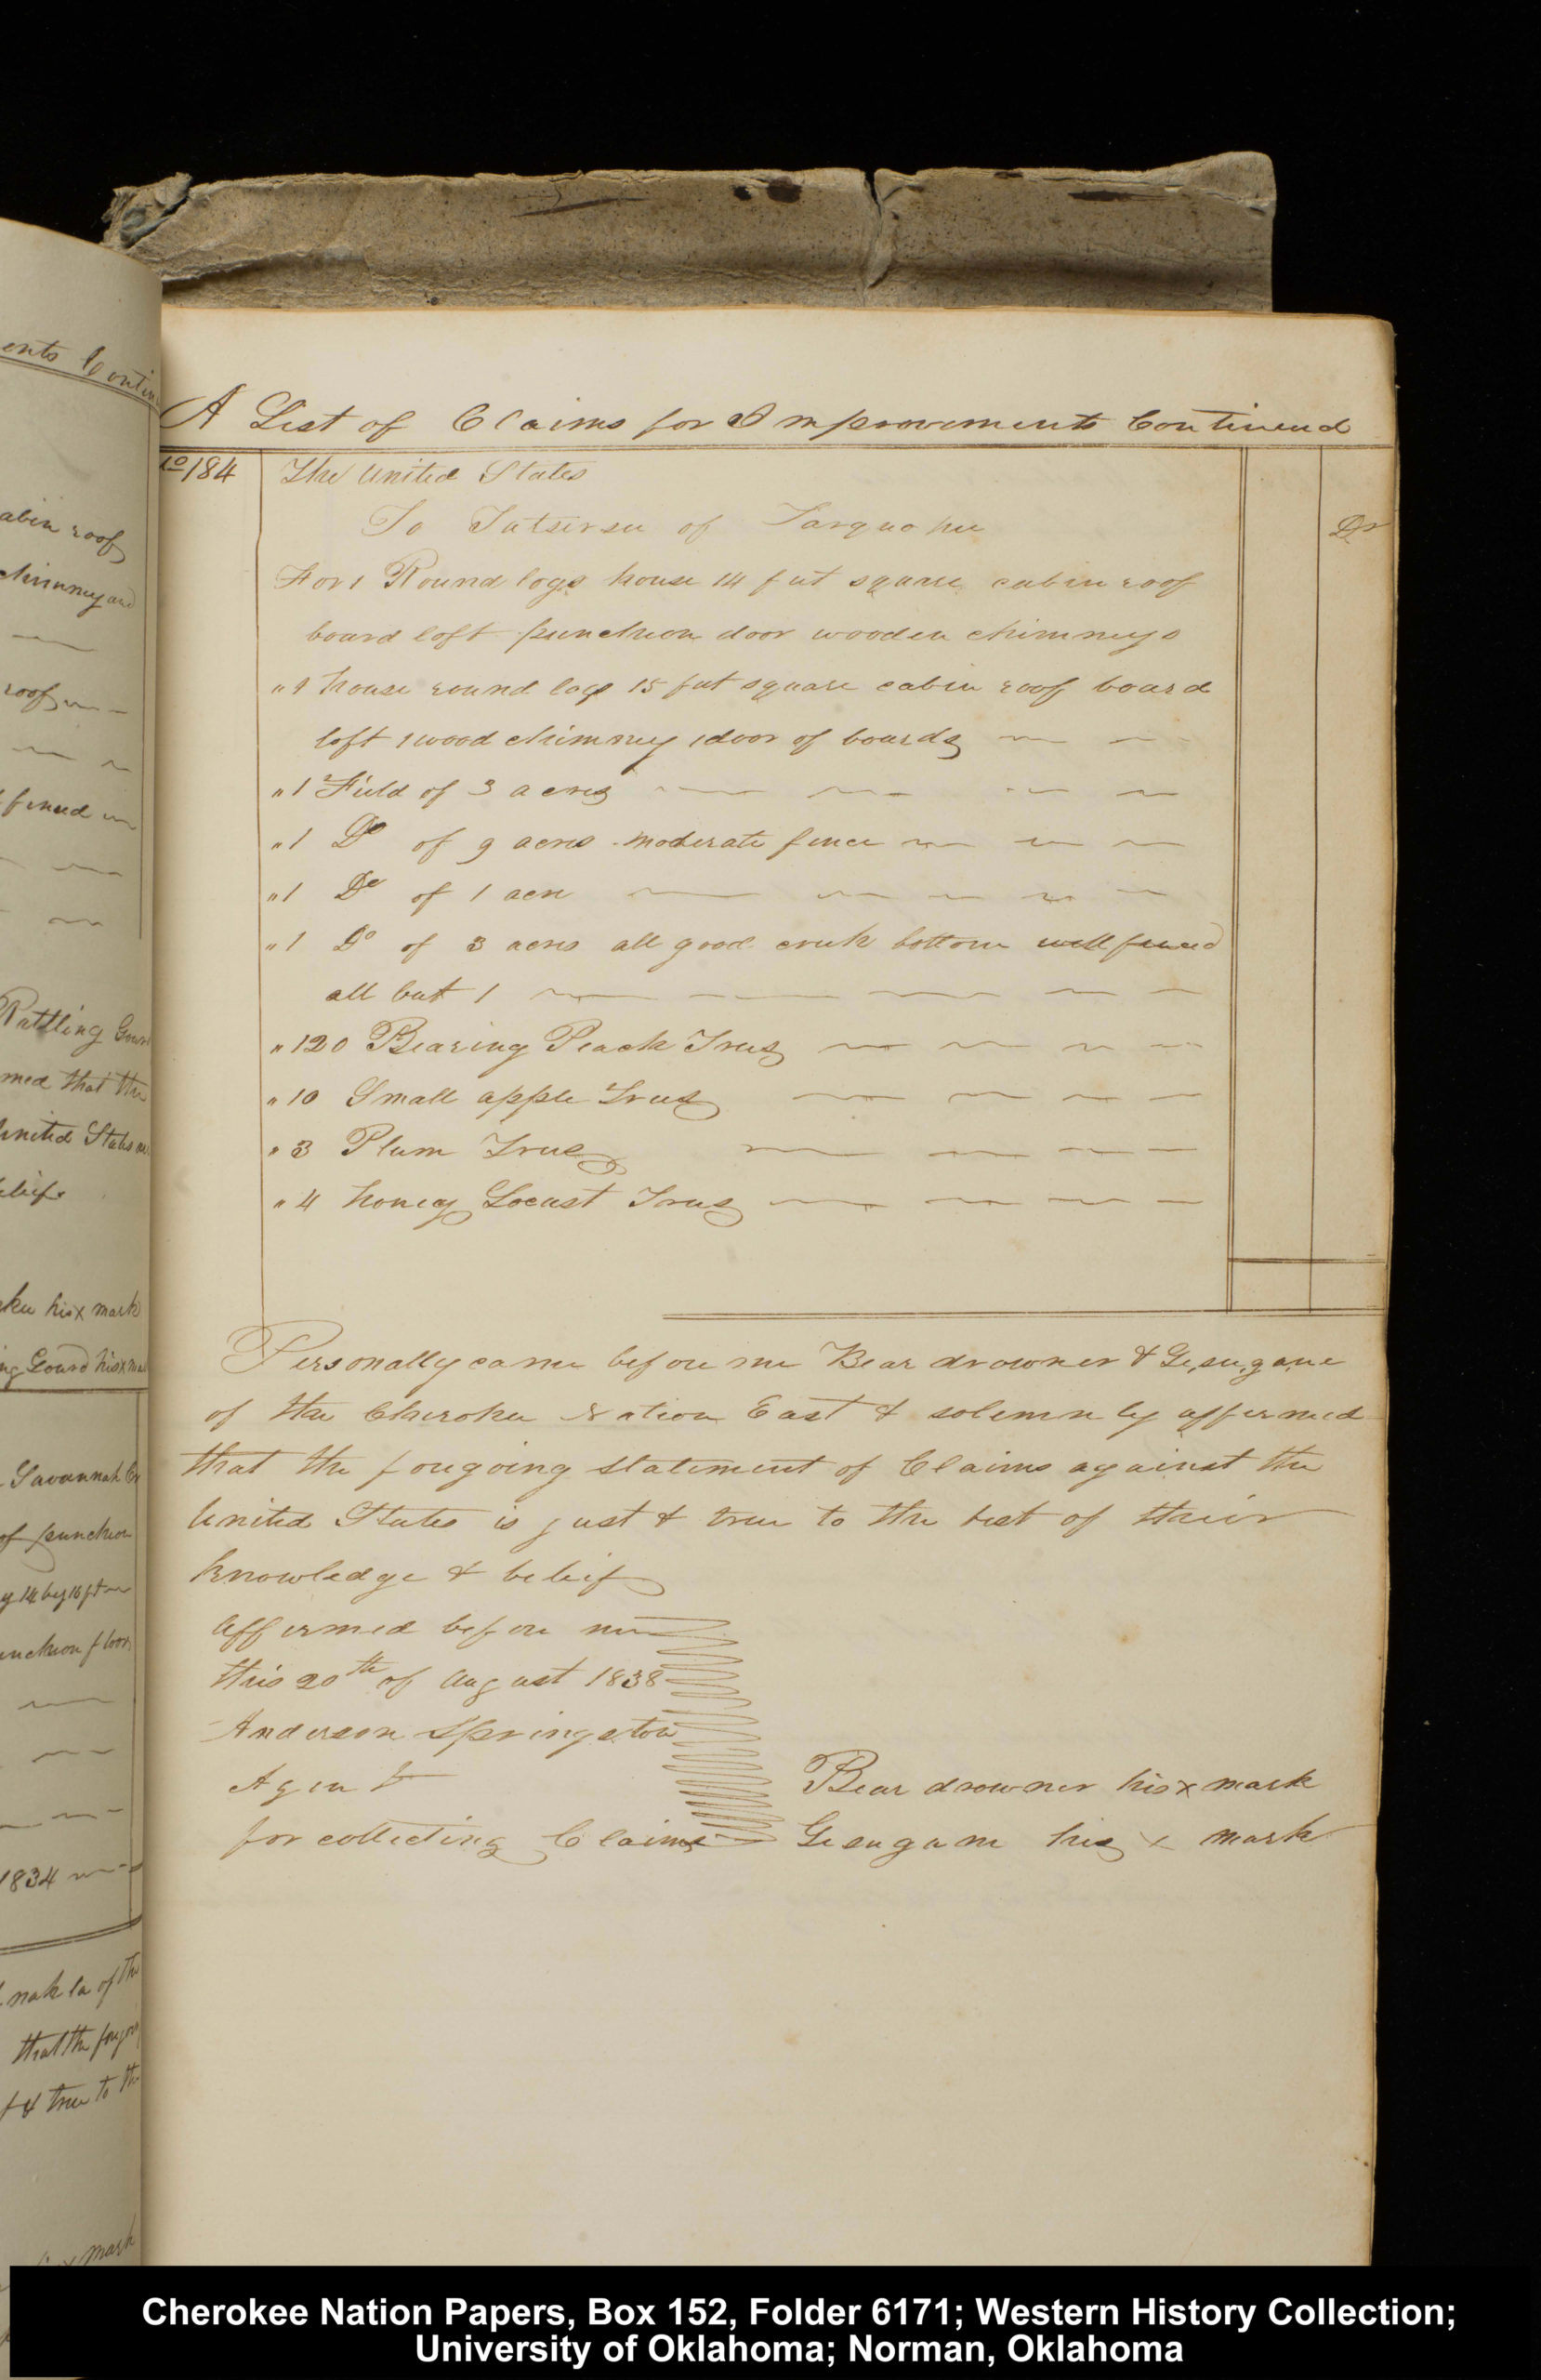 A List of Claims for Improvements Continued
No 184 The United States
To Tatsirsee of Tarquohee Dr
For 1 Round logs house 14 feet square cabin roof
board loft puncheon door wooden chimneys
" 1 house round logs 15 feet square cabin roof board
loft 1 wood chimney 1 door of boards
" 1 Field of 3 acres
" 1 Do of 9 acres moderate fence
" 1 Do of 1 acre
" 1 Do of 3 acres all good creek bottom well fenced
all but 1
" 120 Bearing Peach Trees
" 10 Small apple Trees
" 3 Plum Trees
" 4 honey Locust Trees
Personally came before me Bear drowner & Gesugane
of the Cherokee Nation East & solemnly affirmed
that the foregoing statement of Claims against the
United States is just & true to the best of their
knowledge & beleif
affirmed before me
this 20th of August 1838
Anderson Springston
Agent
for collecting Claims
Bear drowner his x mark
Gesugane his x mark
ents Contin
abin roof
chimney and
roof
fenced
Rattling Gourd
med that the
United States
eleif
kee his x mark
ng Gourd his x mark
Savannah
of puncheon
14 by 16 ft
uncheon floor
1834
nah la of the
that the forego
t & true to the
x mark
Cherokee Nation Papers, Box 152, Folder 6171; Western History Collection;
University of Oklahoma; Norman, Oklahoma